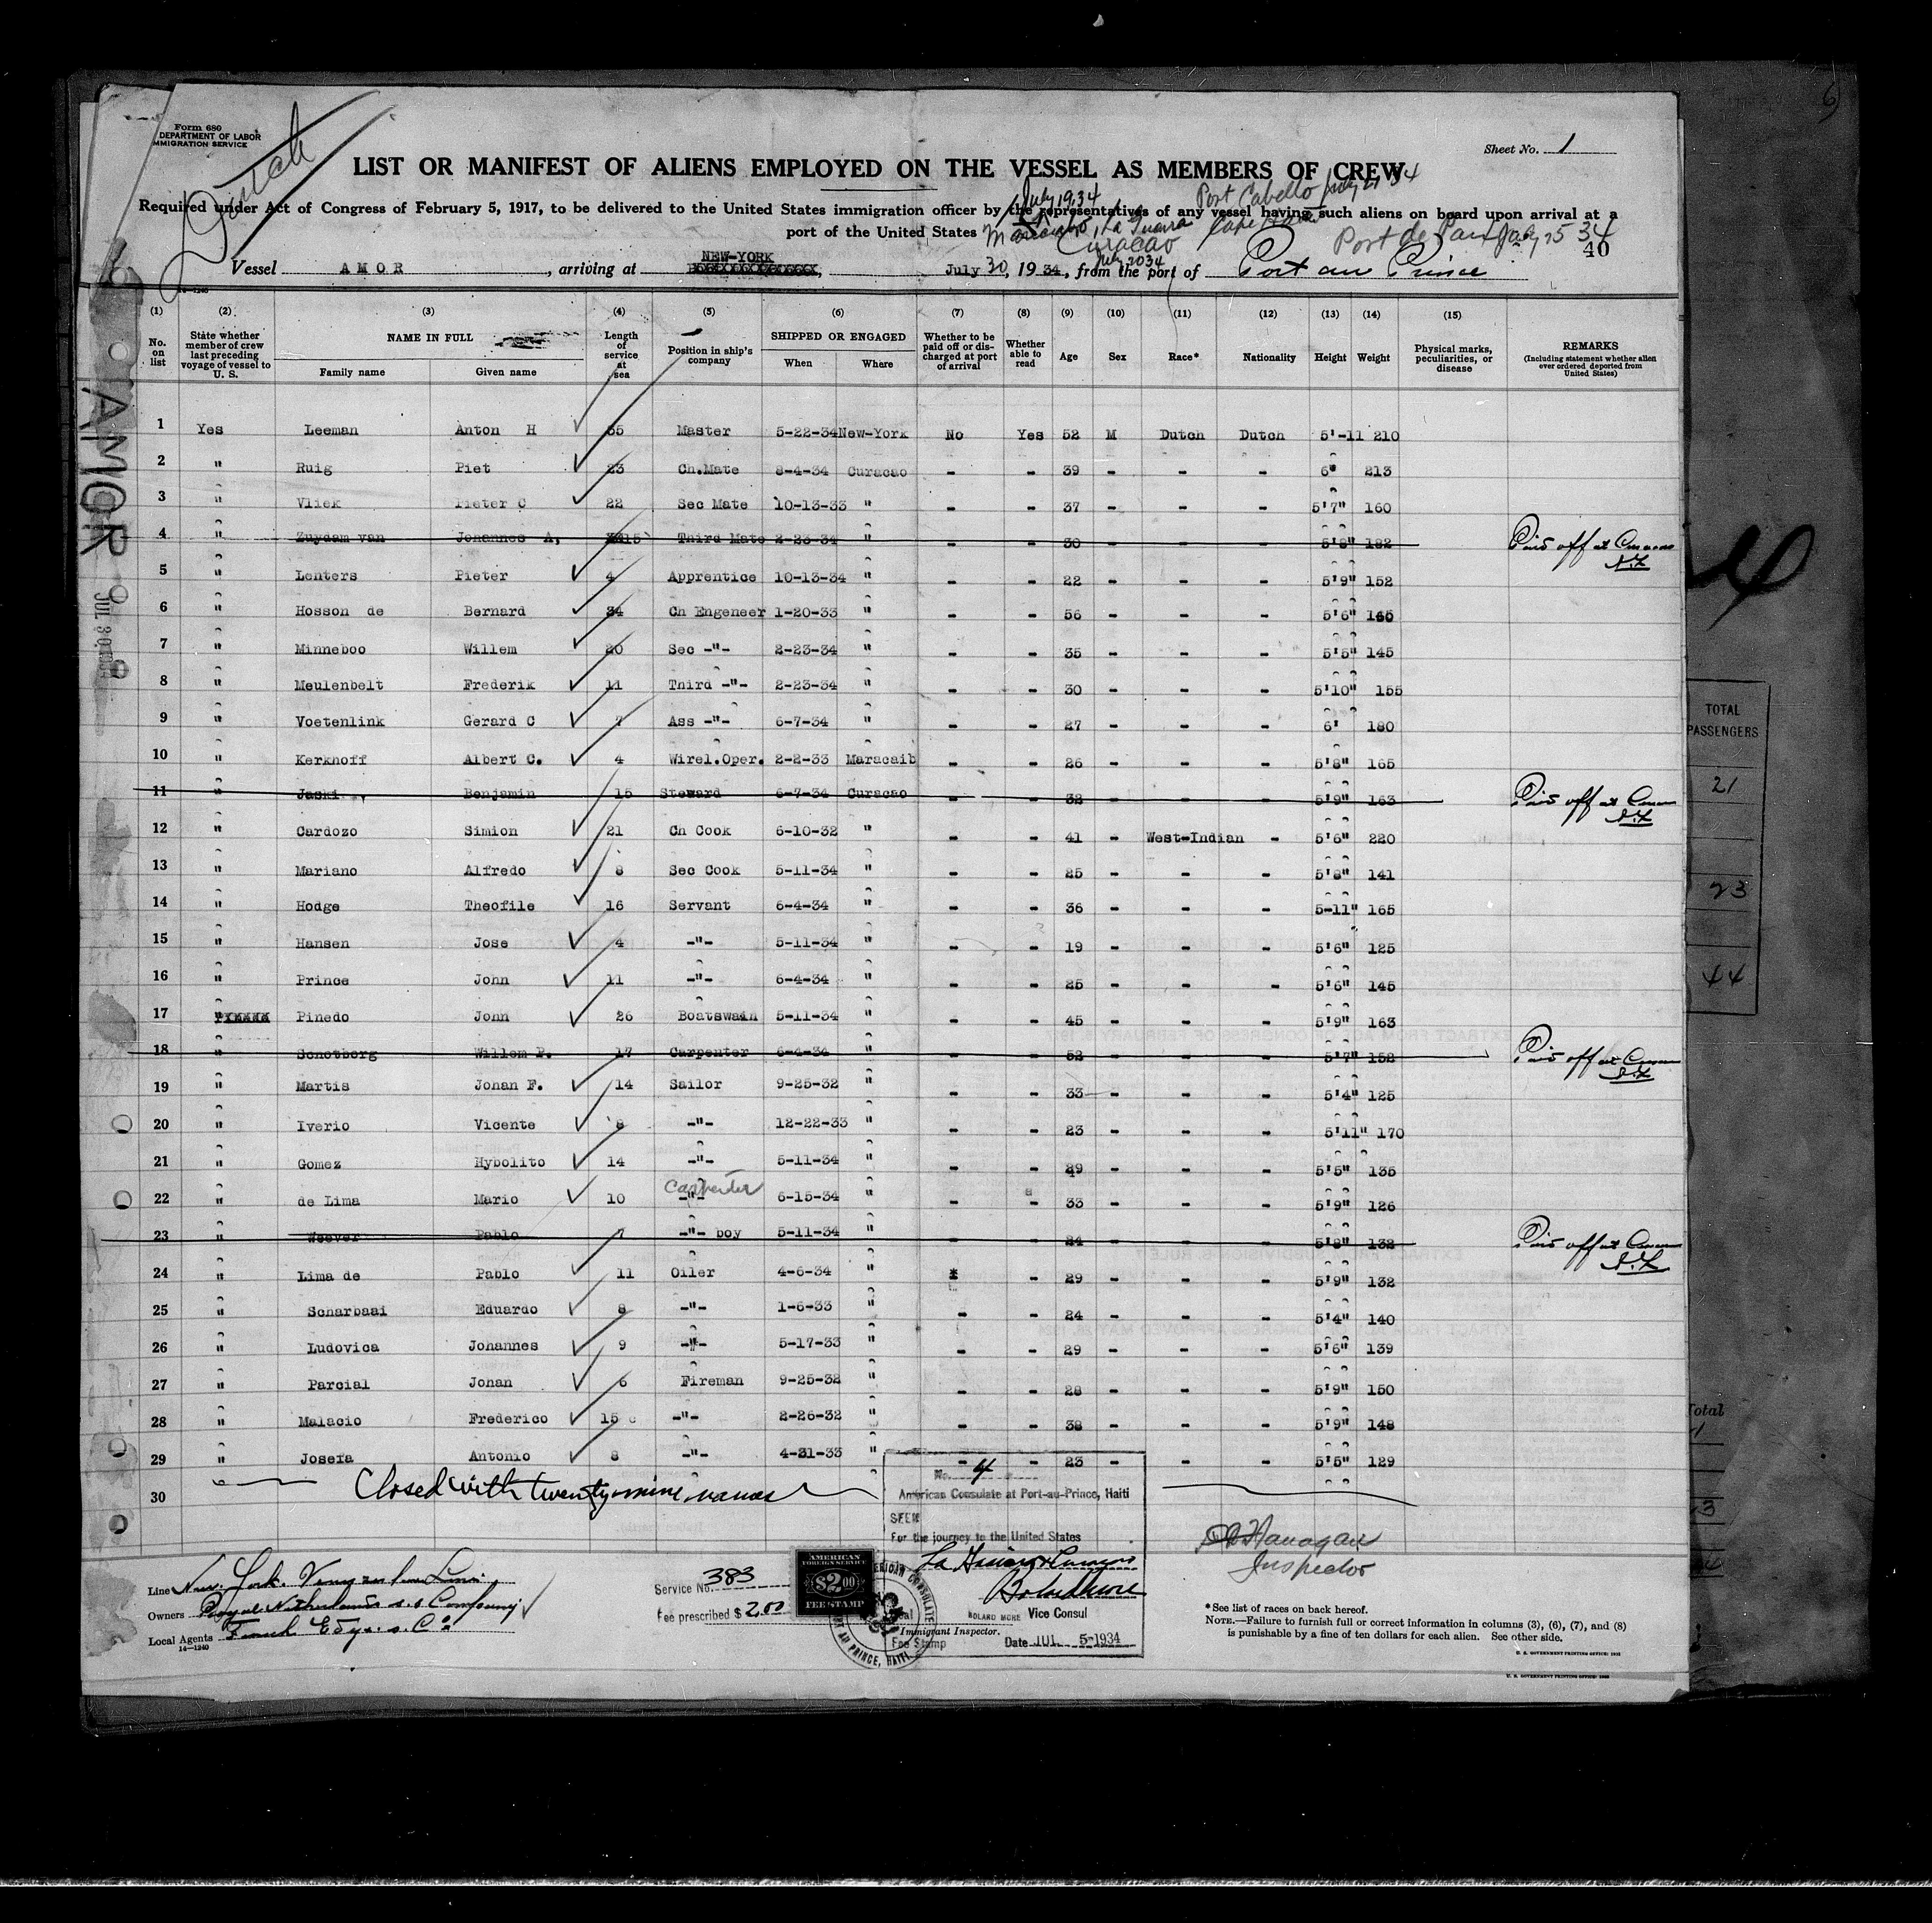 6
Form 680
DEPARTMENT OF LABOR
IMMIGRATION SERVICE
Dutch
Sheet No. 1
LIST OR MANIFEST OF ALIENS EMPLOYED ON THE VESSEL AS MEMBERS OF CREW
July 19, 34 Port Cabello July 21 34
Required under Act of Congress of February 5, 1917, to be delivered to the United States immigration officer by the representatives of any vessel having such aliens on board upon arrival at a
port of the United States Maracaibo, La Guaira
Curacao Port de Paix July 25 34
40
NEW-YORK
Vessel AMOR, arriving at July 30, 1934, from the port of Port au Prince
July 20 34
14-1240
(1) (2) (3) (4) (5) (6) (7) (8) (9) (10) (11) (12) (13) (14) (15)
No. on list State whether member of crew last preceding voyage of vessel to U. S. NAME IN FULL Family name Given name Length of service at sea Position in ship's company SHIPPED OR ENGAGED When Where Whether to be paid off or discharged at port of arrival Whether able to read Age Sex Race* Nationality Height Weight Physical marks, peculiarities, or disease REMARKS (Including statement whether alien ever ordered deported from United States)
1 Yes Leeman Anton H 35 Master 5-22-34 New-York No Yes 52 M Dutch Dutch 5'-11 210
2 " Ruig Piet 23 Ch.Mate 8-4-34 Curacao - - 39 - - - 6" 213
3 " Vliek Pieter C 22 Sec Mate 10-13-33 " - - 37 - - - 5'7" 160
4 " Zuydam van Johannes A, 15 Third Mate 2-23-34 " - - 30 - - - 5'8" 182 Paid off at Curacao
5 " Lenters Pieter 4 Apprentice 10-13-34 " - - 22 - - - 5'9" 152
6 " Hosson de Bernard 34 Ch Engeneer 1-20-33 " - - 56 - - - 5'6" 165
7 " Minneboo Willem 20 Sec -"- 2-23-34 " - - 35 - - - 5'5" 145
8 " Meulenbelt Frederik 11 Third -"- 2-23-34 " - - 30 - - - 5'10" 155
9 " Voetenlink Gerard C 7 Ass -"- 6-7-34 " - - 27 - - - 6' 180
10 " Kerkhoff Albert C. 4 Wirel.Oper. 2-2-33 Maracaib - - 26 - - - 5'8" 165
11 " Jaski Benjamin 15 Steward 6-7-34 Curacao - - 32 - - - 5'9" 163 Paid off at Curacao
12 " Cardozo Simion 21 Ch Cook 6-10-32 " - - 41 - West-Indian - 5'6" 220
13 " Mariano Alfredo 8 Sec Cook 5-11-34 " - - 25 - - - 5'8" 141
14 " Hodge Theofile 16 Servant 6-4-34 " - - 36 - - - 5-11" 165
15 " Hansen Jose 4 -"- 5-11-34 " - - 19 - - - 5'6" 125
16 " Prince John 11 -"- 6-4-34 " - - 25 - - - 5'6" 145
17 Pinedo John 26 Boatswain 5-11-34 " - - 45 - - - 5'9" 163
18 " Schotborg Willem P. 17 Carpenter 6-4-34 " - - 52 - - - 5'7" 152 Paid off at Curacao
19 " Martis Johan F. 14 Sailor 9-25-32 " - - 33 - - - 5'4" 125
20 " Iverio Vicente 8 -"- 12-22-33 " - - 23 - - - 5'11" 170
21 " Gomez Hybolito 14 -"- 5-11-34 " - - 29 - - - 5'5" 135
22 " de Lima Mario 10 -"- Carpenter 6-15-34 " - - 33 - - - 5'9" 126
23 " Weever Pablo 7 -"- boy 5-11-34 " - - 24 - - - 5'8" 132 Paid off at Curacao
24 " Lima de Pablo 11 Oiler 4-6-34 " - 29 - - - 5'9" 132
25 " Scharbaai Eduardo 8 -"- 1-6-33 " - - 24 - - - 5'4" 140
26 " Ludovica Johannes 9 -"- 5-17-33 " - - 29 - - - 5'6" 139
27 " Parcial Johan 6 Fireman 9-25-32 " - - 28 - - - 5'9" 150
28 " Malacio Frederico 15 -"- 2-26-32 " - - 38 - - - 5'9" 148
29 " Josefa Antonio 8 -"- 4-21-33 " - - 23 - - - 5'5" 129
30 Closed with twenty-nine names
No. 4
American Consulate at Port-au-Prince, Haiti
SEEN
For the journey to the United States
Vice Consul
Immigrant Inspector.
Fee Stamp Date JUL 5-1934
Flanagan
Inspector
Line New York
Owners Royal Netherlands s.s Company
Local Agents
14-1240
Service No. 383
Fee prescribed $ 2.00
AMERICAN
FOREIGN SERVICE
$2.00
FEE STAMP
AMERICAN CONSULATE
PORT AU PRINCE, HAITI
*See list of races on back hereof.
NOTE.—Failure to furnish full or correct information in columns (3), (6), (7), and (8)
is punishable by a fine of ten dollars for each alien. See other side.
AMOR
JUL 30 1934
4
TOTAL
PASSENGERS
21
23
44
Total